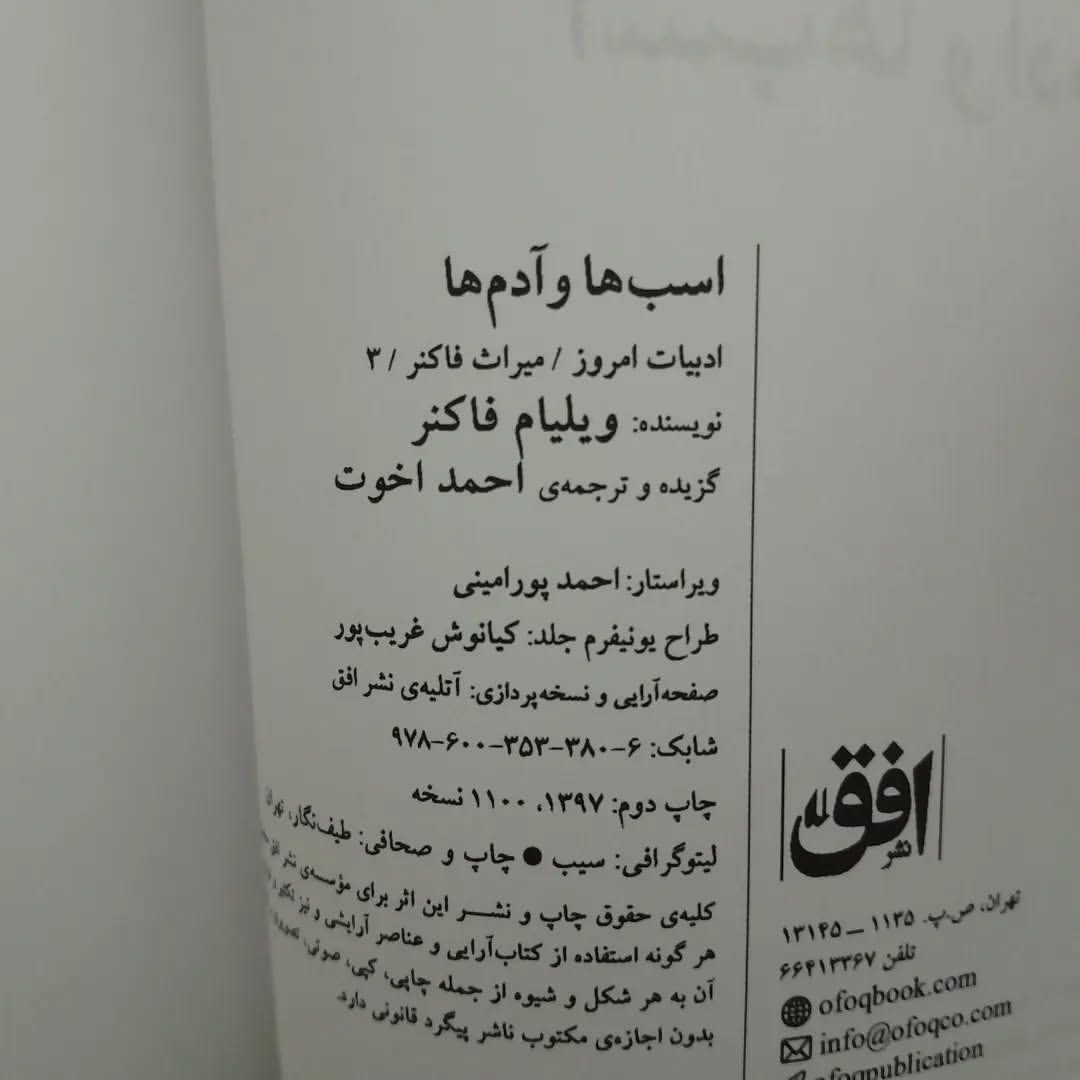 اسب‌ها و آدم‌ها
ادبیات امروز / میراث فاکنر / ۳
نویسنده: ویلیام فاکنر
گزیده و ترجمه‌ی احمد اخوت
ویراستار: احمد پورامینی
طراح یونیفرم جلد: کیانوش غریب‌پور
صفحه‌آرایی و نسخه‌پردازی: آتلیه‌ی نشر افق
شابک: ۶-۳۸۰-۳۵۳-۶۰۰-۹۷۸
چاپ دوم: ۱۳۹۷، ۱۱۰۰ نسخه
لیتوگرافی: سیب ● چاپ و صحافی: طیف‌نگار، تهران
کلیه‌ی حقوق چاپ و نشر این اثر برای مؤسسه‌ی نشر افق
هر گونه استفاده از کتاب‌آرایی و عناصر آرایشی و نیز تکثیر و
آن به هر شکل و شیوه از جمله چاپی، کپی، صوتی، تصویری
بدون اجازه‌ی مکتوب ناشر پیگرد قانونی دارد.
نشر افق
تهران، ص.پ. ۱۱۳۵ – ۱۳۱۴۵
تلفن ۶۶۴۱۳۳۶۷
ofoqbook.com
info@ofoqco.com
ofoqpublication